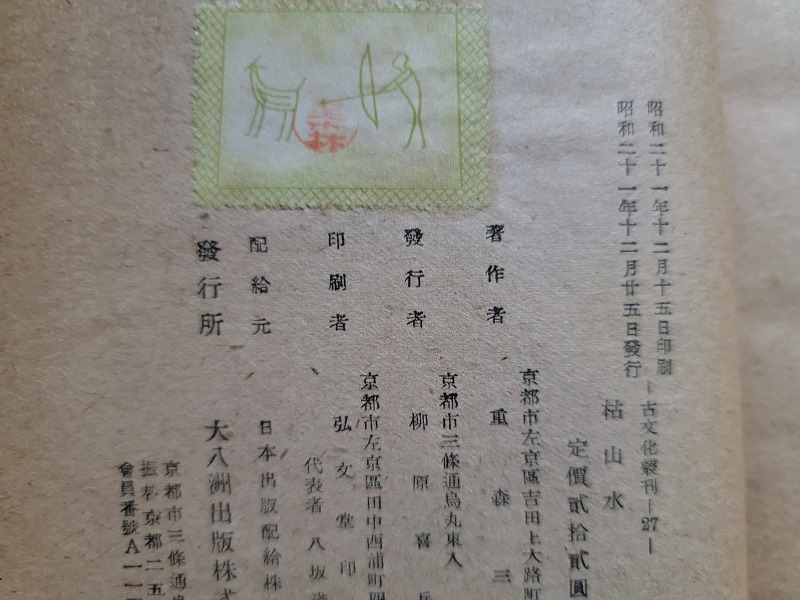 昭和二十一年十二月十五日印刷
昭和二十一年十二月廿五日發行
―古文化叢刊―27―
枯山水
定價貳拾貳圓
著作者
京都市左京區吉田上大路町
重森三
發行者
京都市三條通烏丸東入
柳原喜兵
印刷者
京都市左京區田中西浦町
弘文堂印
代表者 八坂
配給元
日本出版配給株
發行所
大八洲出版株式
京都市三條通烏
振替京都二五
會員番號A一一
重森